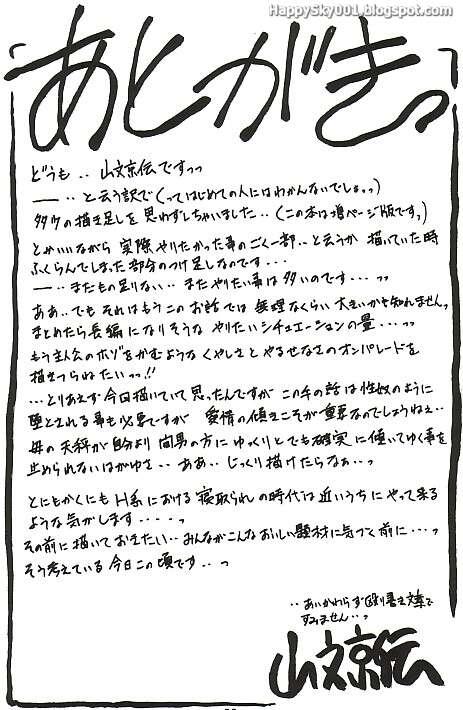 HappySky001.blogspot.com
あとがきっ
どうも‥山文京伝ですっっ
――‥と云う訳で(ってはじめての人にはわかんないでしょっっ)
多少の描き足しを思わずしちゃいました‥(この本は増ページ版ですっ)
とかいいながら 実際やりたかった事のごく一部‥と云うか 描いていた時
ふくらんでしまった部分のつけ足しなのです・・・
――‥まだもの足りない‥まだやりたい事は多いのです・・・っっ
ああ‥でも それはもうこのお話では 無理なくらい 大きいかも知れませんっ
まとめたら長編になりそうな やりたいシチュエーションの量・・・・っっ
もう主人公のホゾをかむような くやしさと やるせなさのオンパレードを
描きつらねたいっっ!!
・・・とりあえず今回描いていて思ったんですが この手の話は性奴のように
堕とされる事も必要ですが 愛情の傾きこそが重要なのでしょうねえ‥
母の天秤が自分より 間男の方に ゆっくりとでも確実に傾いてゆく事を
止められないはがゆさ‥ああ‥じっくり描けたらなぁ‥っ
とにもかくにも H系における 寝取られの時代は近いうちに やって来る
ような気がします・・・・っ
その前に描いておきたい‥みんながこんなおいしい題材に気づく前に・・・っ
そう考えている今日この頃です‥っ
‥あいかわらず殴り書き文章で
すみません‥っ
山文京伝